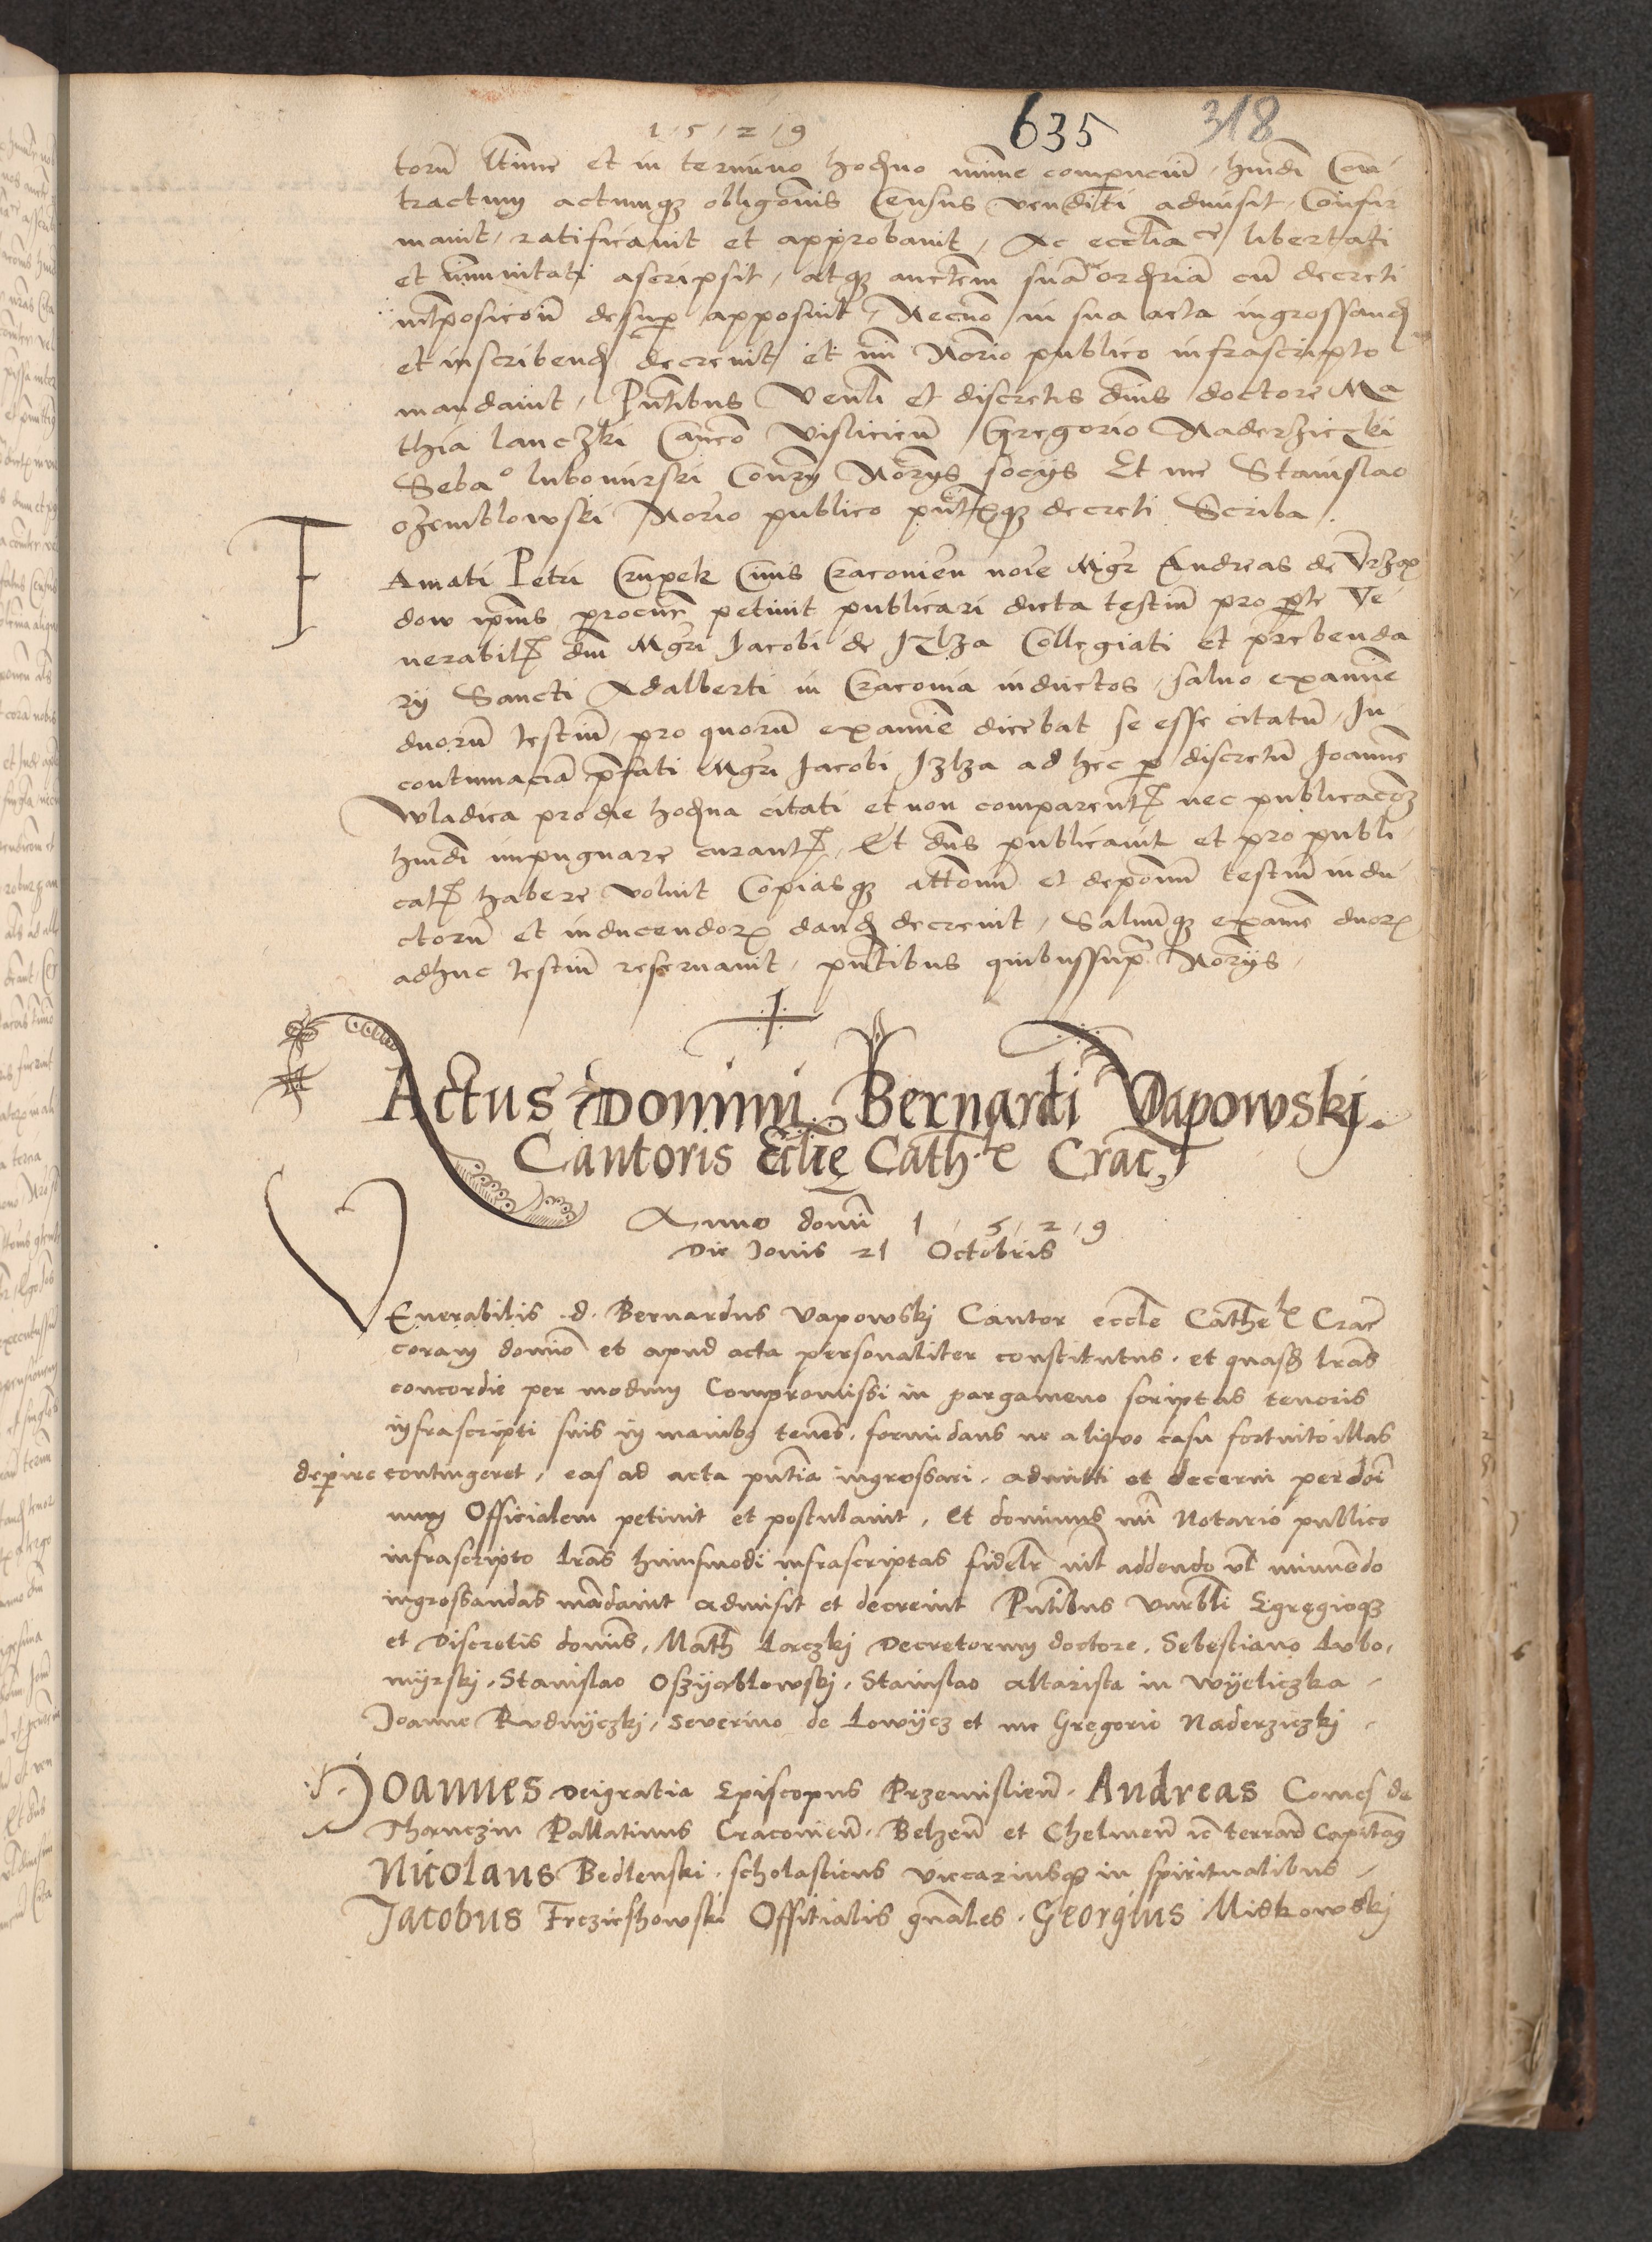 1 5 2 9
635 318
torũ ltime et in termino hodierno minime comparencium, hmõi Con
tractum actumq obligõnis Census venditi admisit, Confir
mavit, ratificavit et approbavit, Ac ecclia libertati
et immunitati ascripsit, atq auctem suã ordriã cũ decreti
intposicõe desup apposuit, Necnõ in sua acta ingrossand
et inscribend decrevit et mi Norio publico infrascripto
mandavit, Pntibus Venli et discretis dnis doctore Ma
thia lanczki Canco Vislicien Gregorio Naderziczki
Seba° lubomirski Norys socys Et me Stanislao
ozemblowski Norio publico pntq decreti Scriba.
FAmati Petri Crupek Civis Cracovien noie Mgr Andreas de Vrzą
dow ipius procur petivit publicari dicta testiũ pro pte Ve
nerabil dni Mgri Jacobi de Jlza Collegiati et prebenda
rij Sancti Adalberti in Cracovia inductos, salvo examine
duorũ testiũ, pro quorũ examine dicebat se esse citatũ, In
contumaciã pfati Mgri Jacobi Jzlza ad hec p discretũ Joannẽ
Wladica pro die hodrna citati et non comparent nec publicacõẽ
hmõi impugnare curant, Et dns publicavit et pro publi
cat habere voluit Copiasq attonũ et deponũ testiũ indu
ctorũ et inducendor dand decrevit, Salvũq examẽ duor
adhuc testiũ reservavit, pntibus quibussup Norys
Actus Domini Bernardi Vapowskj.
Cantoris Eclię Cathlis Crac
Anno domi 1 5 2 9
Die Jovis 21 Octobris
VEnerabilis d. Bernardus Vapowskj Cantor eccle Cathel Crac
coram domio et apud acta personaliter constitutus. et quasd lras
concordie per modum Compromissi in pargameno scriptas tenoris
infrascripti suis in manibq tenẽs. formidans ne aliquo casu fortuito illas
depire contingeret, eas ad acta pntia ingrossari. admitti et decerni per doi
num Officialem petivit et postulavit, et dominus mi Notario publico
infrascripto lras huiusmodi infrascriptas fidelr nil addendo vl minuẽdo
ingrossandas mãdavit admisit et decrevit Pntibus Vnrbli Egregioq
et Discretis domis, Math Lorczkj Decretorum doctore. Sebestiano Lubo,
myrskj, Stanislao Oszyablowskj, Stanislao altarista in Wyeliczka
Joanne Rudnyczkj, Severino de Lowycz et me Gregorio Naderziczkj
Joannes Dei gratia Episcopus Przemislien. Andreas Comes de
Thanczin Pallatinus Cracovien. Belzen et Chelmen ic terrarũ Capitan
Nicolaus Bedlenski. scholasticus Viccariusq in spiritualibus
Jacobus Frczieszowski Offitialis gnales. Georgius Miskowskj